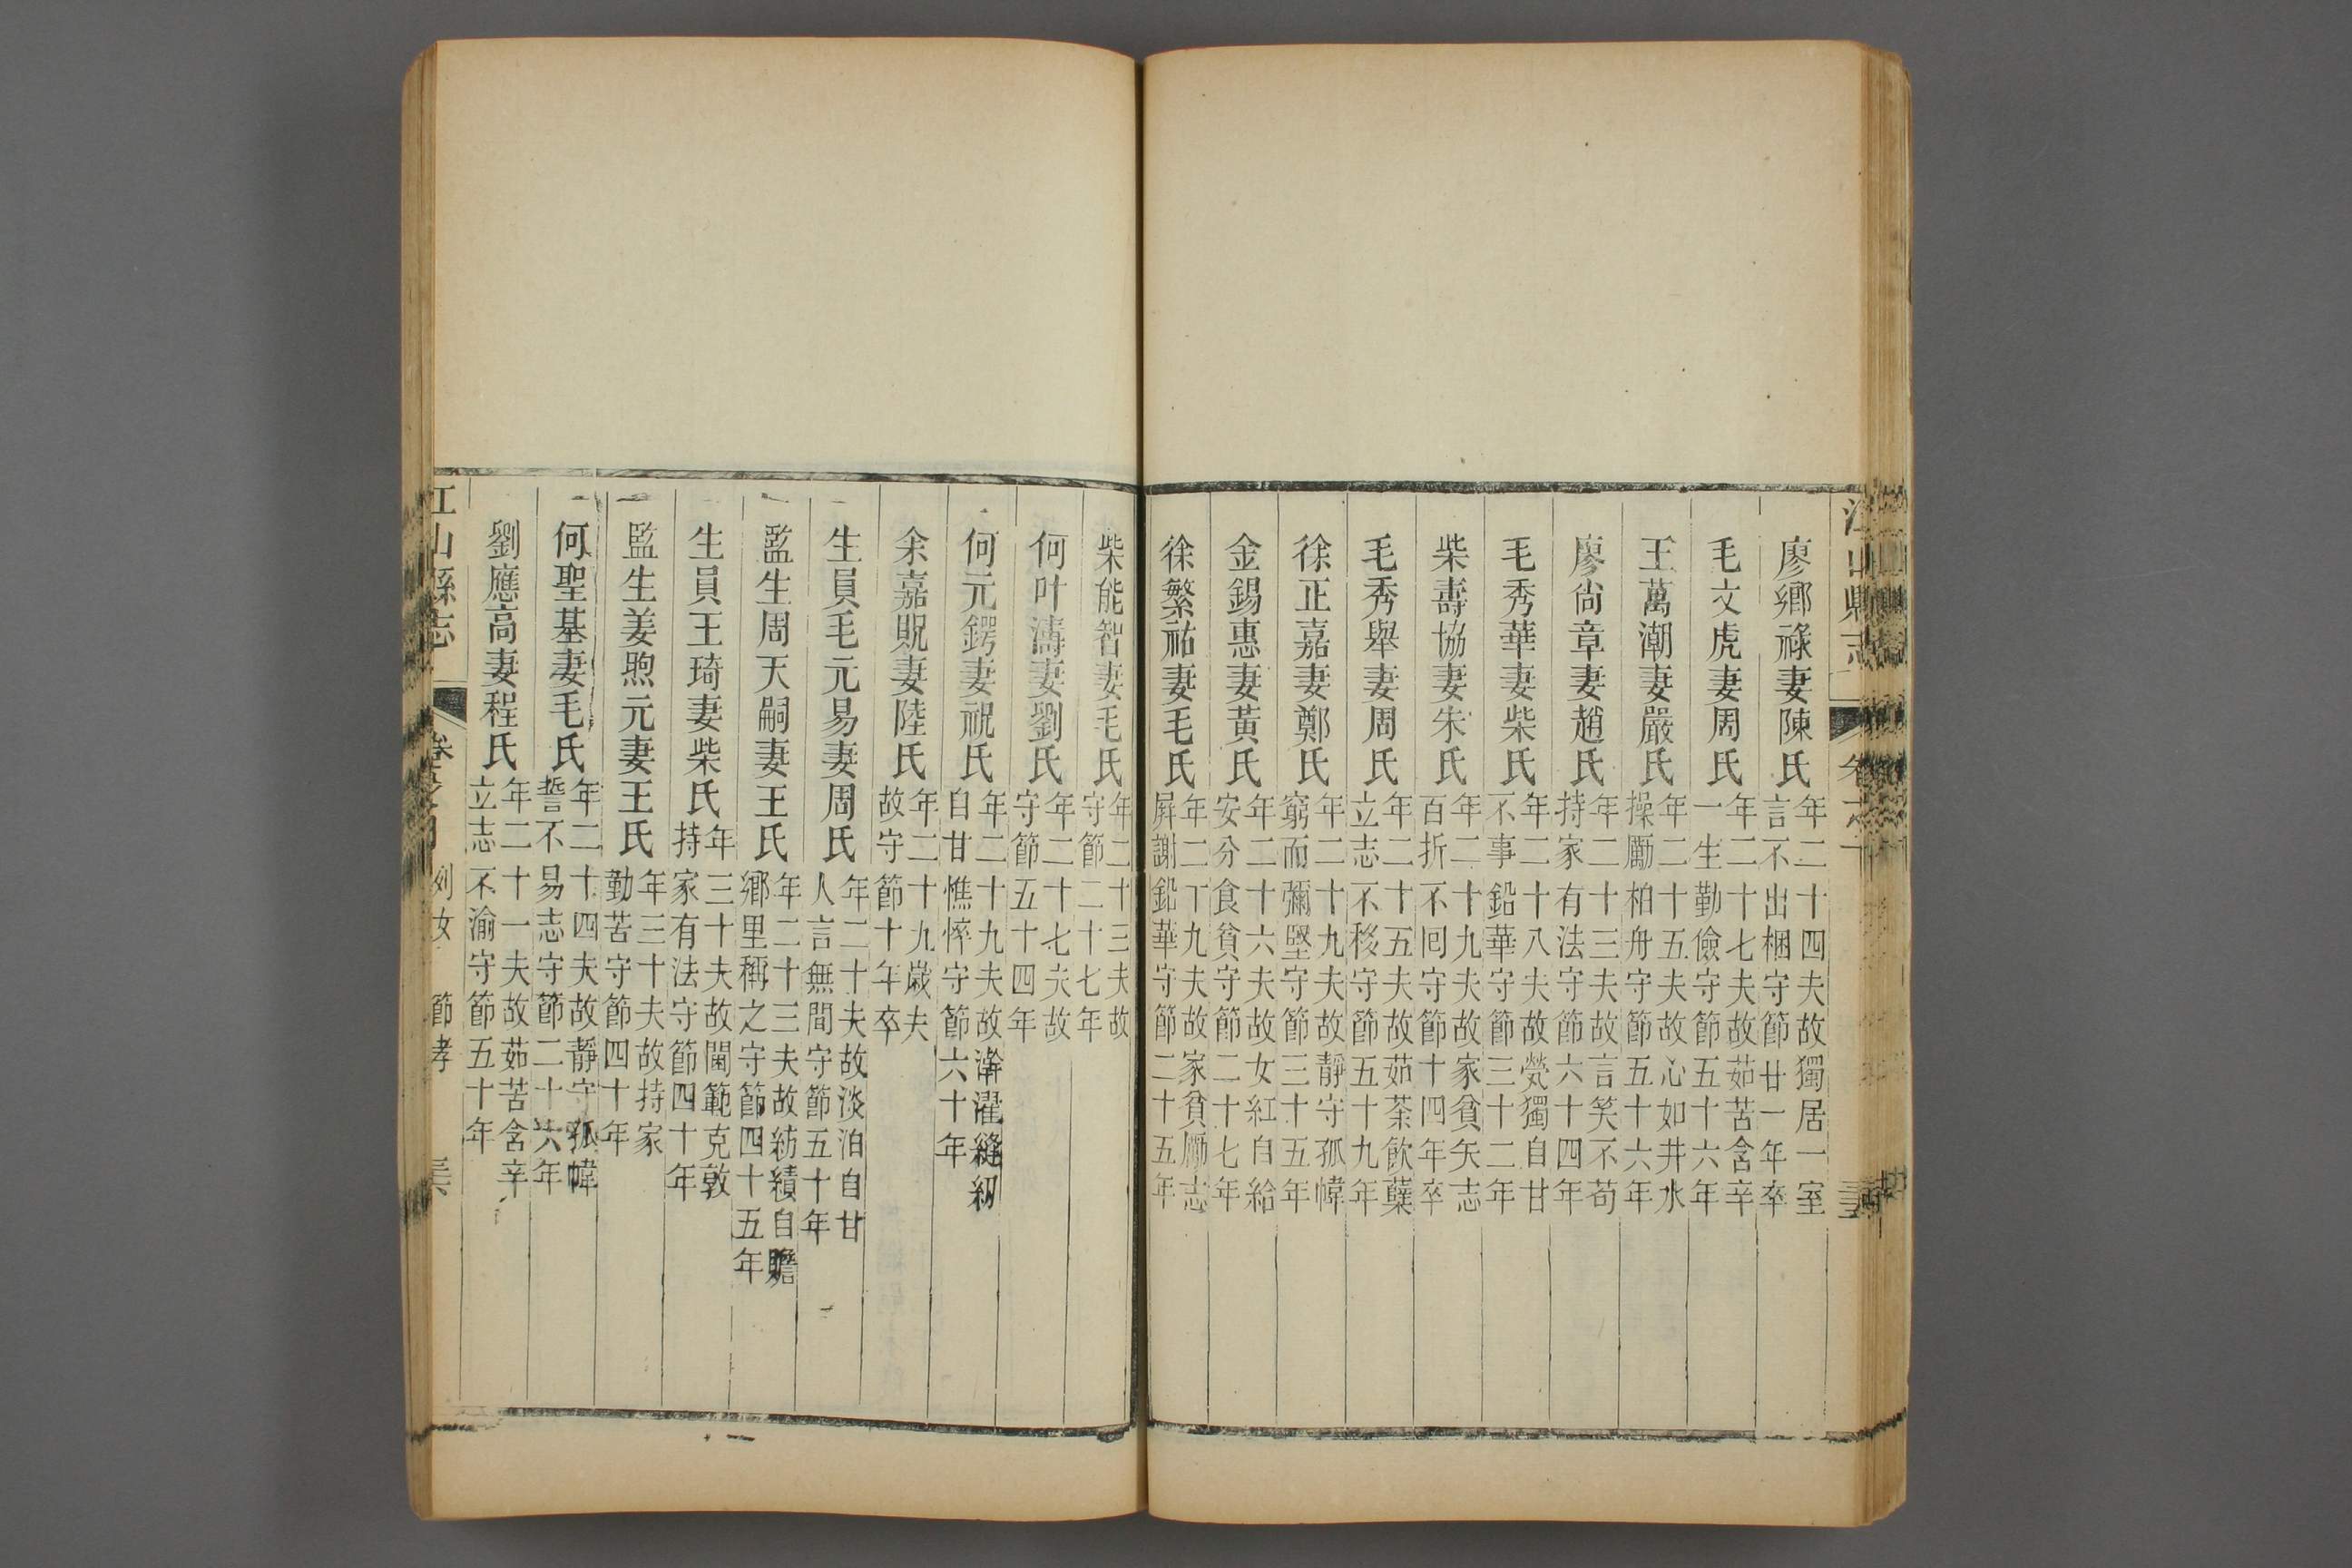 廖鄉祿妻陳氏 年二十四夫故獨居一室言不出梱守節廿一年卒
毛文虎妻周氏 年二十七夫故茹苦含辛一生勤儉守節五十六年
王萬潮妻嚴氏 年二十五夫故心如井水操勵柏舟守節五十六年
廖尙章妻趙氏 年二十三夫故言笑不苟持家有法守節六十四年
毛秀華妻柴氏 年二十八夫故煢獨自甘不事鉛華守節三十二年
柴壽協妻朱氏 年二十九夫故家貧矢志百折不囘守節十四年卒
毛秀舉妻周氏 年二十五夫故茹茶飮蘗立志不移守節五十九年
徐正嘉妻鄭氏 年二十九夫故靜守孤幃窮而彌堅守節三十五年
金錫惠妻黃氏 年二十六夫故女紅自給安分食貧守節二十七年
徐繁祐妻毛氏 年二十九夫故家貧勵志屛謝鉛華守節二十五年
柴能智妻毛氏 年二十三夫故守節二十七年
何叶濤妻劉氏 年二十七夫故守節五十四年
何元鍔妻祝氏 年二十九夫故澣濯縫紉自甘憔悴守節六十年
余嘉貺妻陸氏 年二十九歲夫故守節十年卒
生員毛元易妻周氏 年二十夫故淡泊自甘人言無間守節五十年
監生周天嗣妻王氏 年二十三夫故紡績自贍鄉里稱之守節四十五年
生員王琦妻柴氏 年三十夫故閫範克敦持家有法守節四十年
監生姜煦元妻王氏 年三十夫故持家勤苦守節四十年
何聖基妻毛氏 年二十四夫故靜守孤幃誓不易志守節二十六年
劉應高妻程氏 年二十一夫故茹苦含辛立志不渝守節五十年
江山縣志 列女 節孝